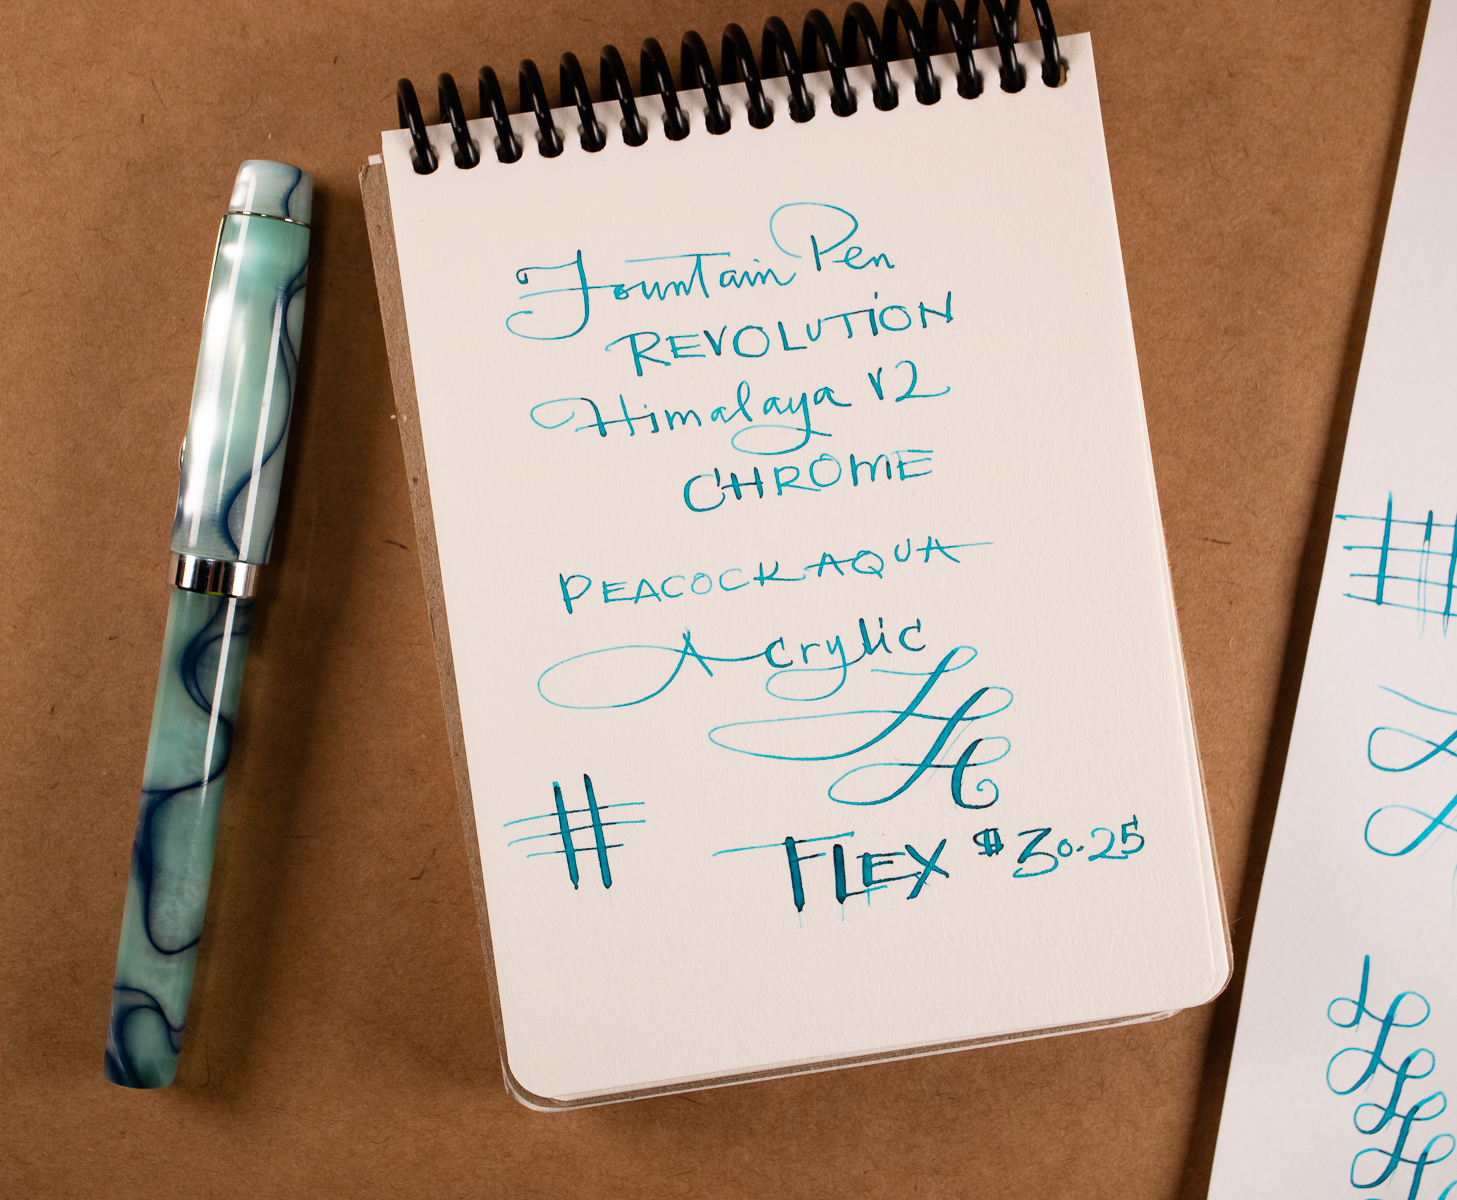 Fountain Pen
REVOLUTION
Himalaya V2
CHROME
PEACOCK AQUA
Acrylic
#
FLEX $30.25